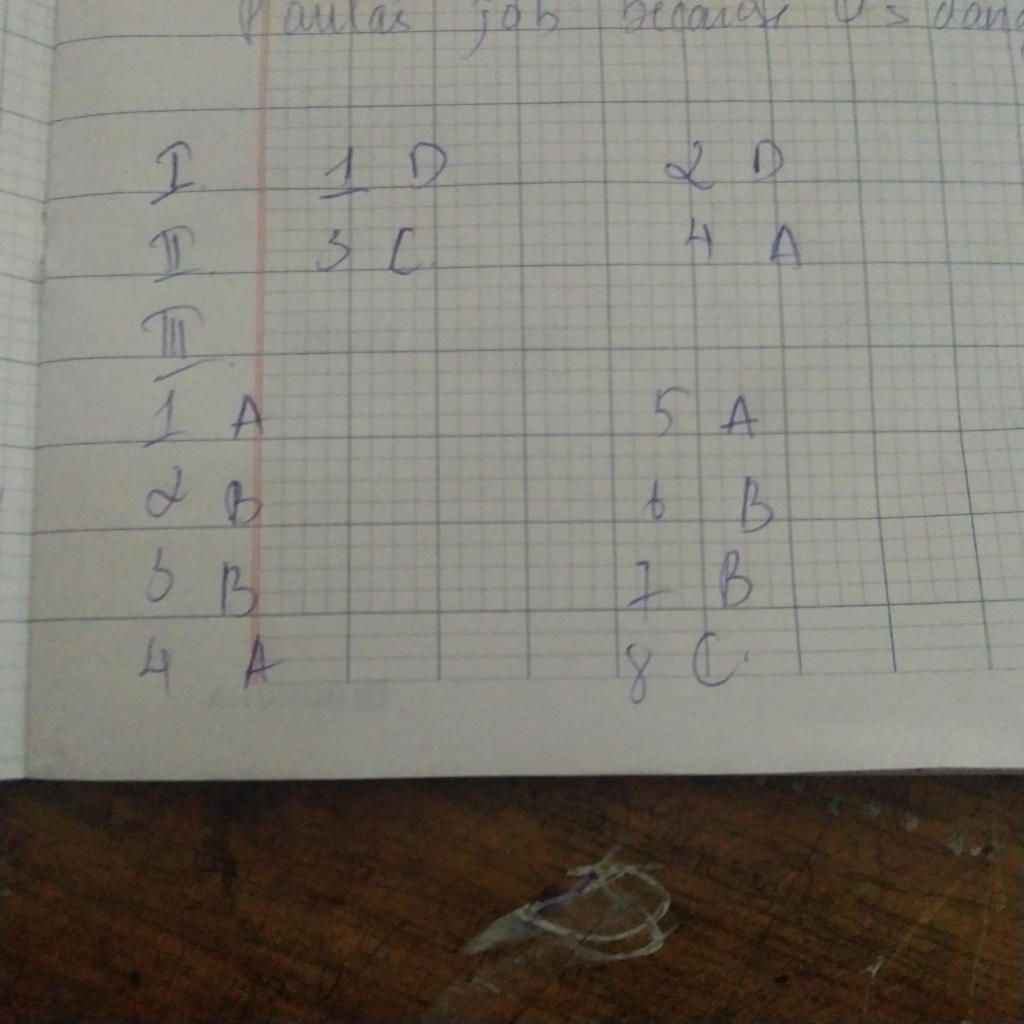 Paula's job because
I 1 D 2 D
II 3 C 4 A
III
1 A 5 A
2 B 6 B
3 B 7 B
4 A 8 C